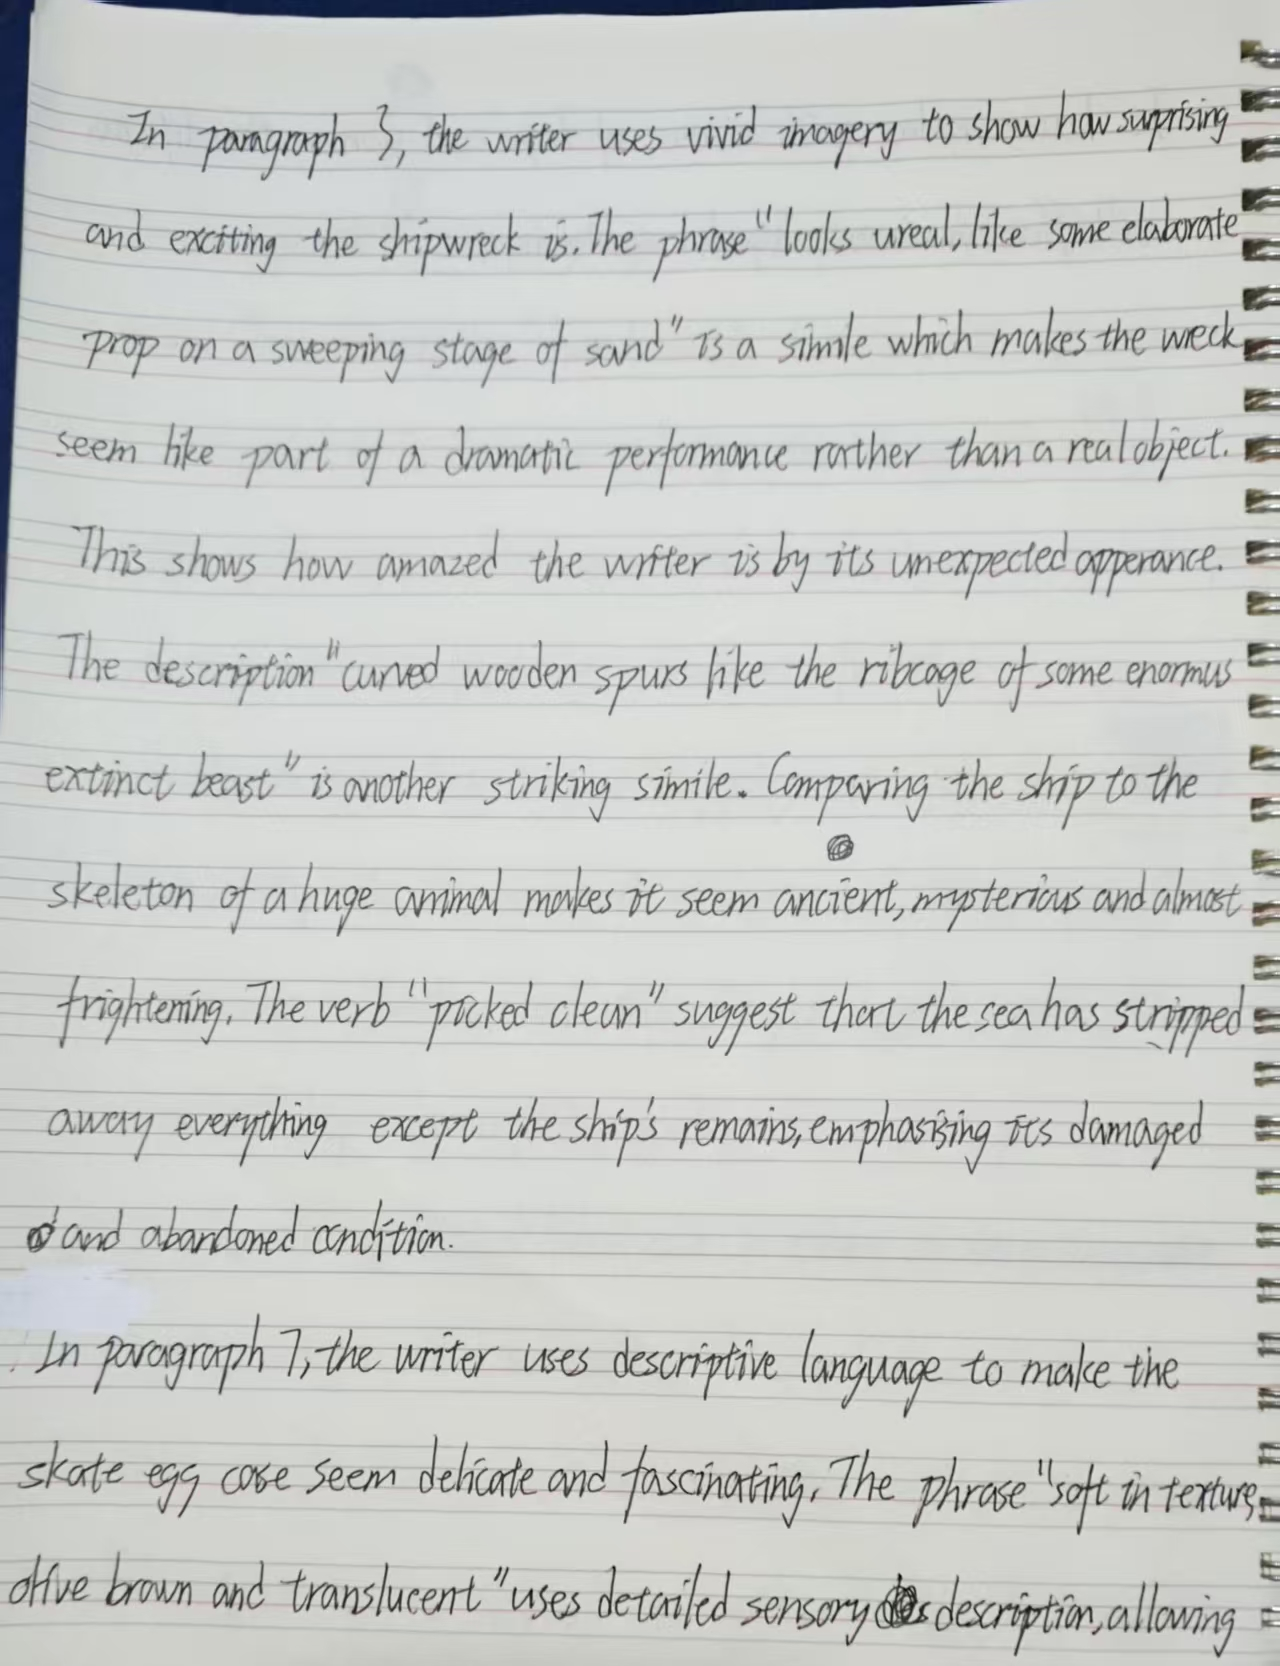 In paragraph 3, the writer uses vivid imagery to show how surprising
and exciting the shipwreck is. The phrase "looks ureal, like some elaborate
prop on a sweeping stage of sand" is a simile which makes the wreck
seem like part of a dramatic performance rather than a real object.
This shows how amazed the writer is by its unexpected apperance.
The description "curved wooden spurs like the ribcage of some enormus
extinct beast" is another striking simile. Comparing the ship to the
skeleton of a huge animal makes it seem ancient, mysterious and almost
frightening. The verb "picked clean" suggest that the sea has stripped
away everything except the ship's remains, emphasising its damaged
and abandoned condition.
In paragraph 7, the writer uses descriptive language to make the
skate egg case seem delicate and fascinating. The phrase "soft in texture,
olive brown and translucent" uses detailed sensory description, allowing